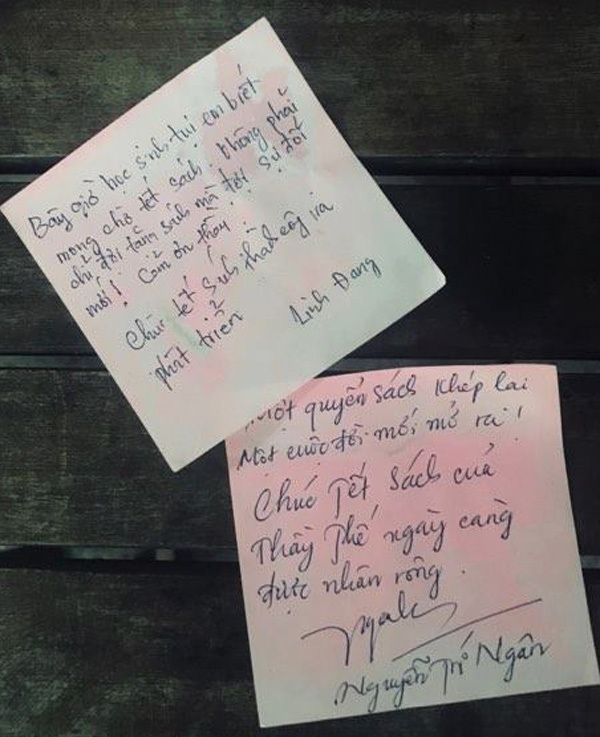 Bây giờ học sinh tụi em biết
mong chờ tết sách. Không phải
chỉ đợi tặng sách mà đợi sự đổi
mới! Cảm ơn thầy!
Chúc tết sách thành công và
phát triển
Linh Đang
Một quyển sách khép lại
Một cuộc đời mới mở ra!
Chúc Tết sách của
Thầy Thế ngày càng
được nhân rộng.
Nguyễn Trí Ngân